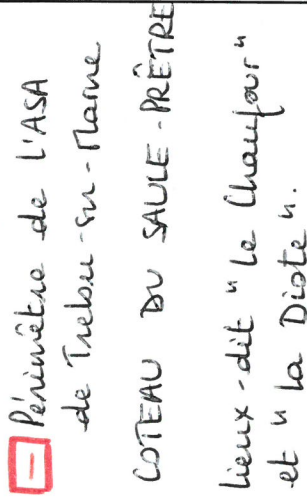 Périmètre de l'ASA
de Trelou-sur-Marne
COTEAU DU SAULE-PRÊTRE
lieux-dit "le Chaufour"
et "la Diote".